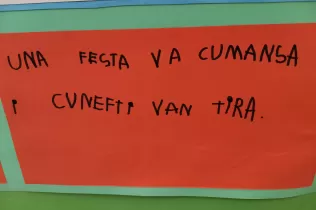 UNA FESTA VA CUMANSA
i CUNEFTI VAN TiRA.